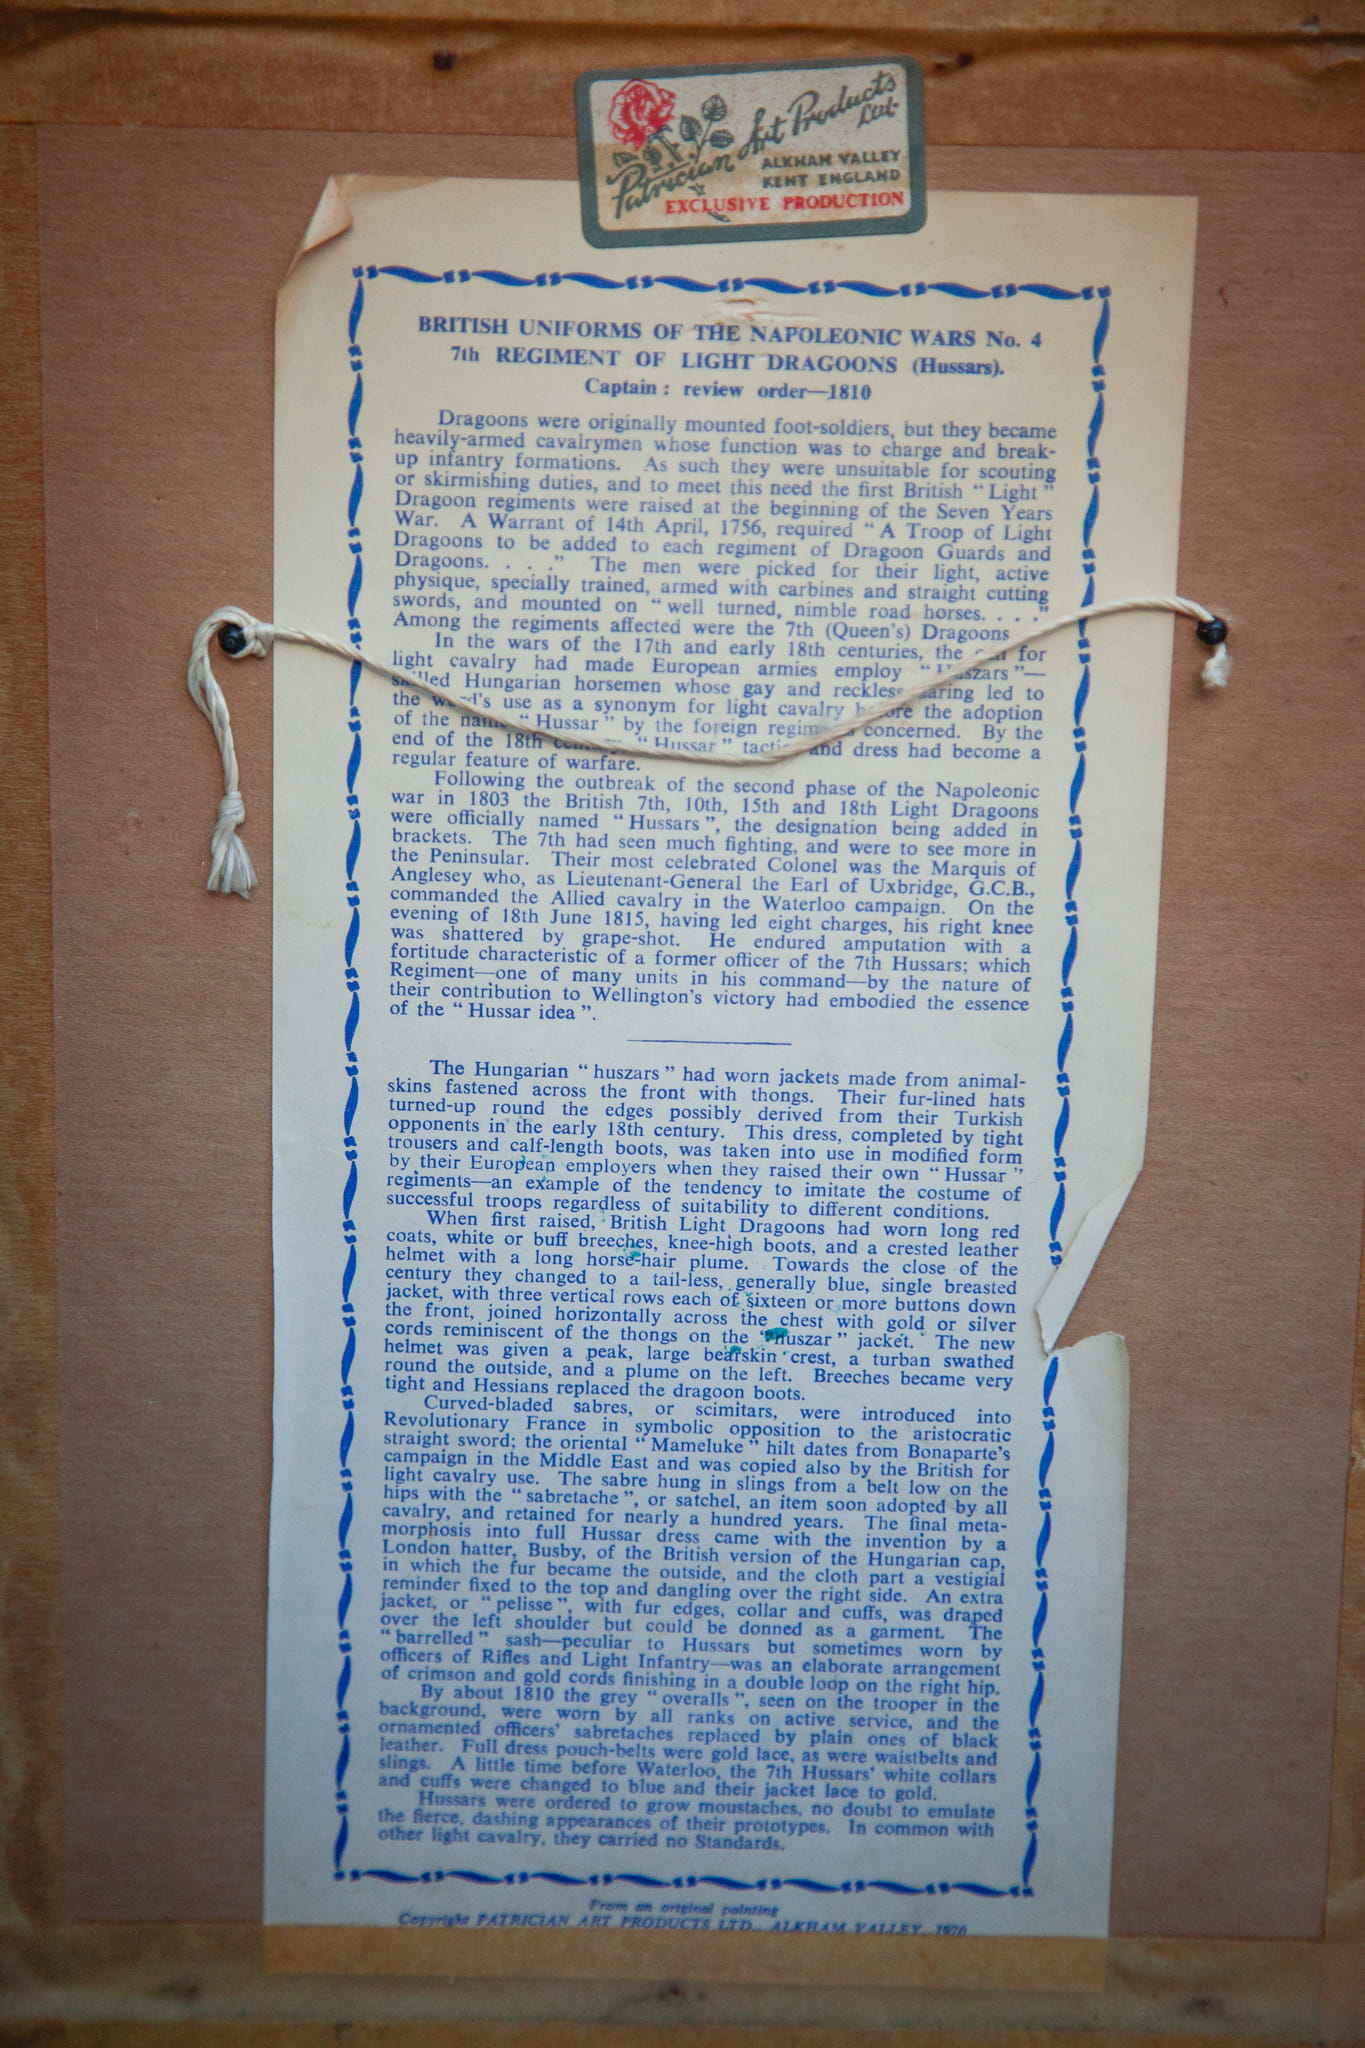 Patrician Art Products
Ltd.
ALKHAM VALLEY
KENT ENGLAND
EXCLUSIVE PRODUCTION
BRITISH UNIFORMS OF THE NAPOLEONIC WARS No. 4
7th REGIMENT OF LIGHT DRAGOONS (Hussars).
Captain : review order—1810
Dragoons were originally mounted foot-soldiers, but they became
heavily-armed cavalrymen whose function was to charge and break-
up infantry formations. As such they were unsuitable for scouting
or skirmishing duties, and to meet this need the first British “ Light ”
Dragoon regiments were raised at the beginning of the Seven Years
War. A Warrant of 14th April, 1756, required “ A Troop of Light
Dragoons to be added to each regiment of Dragoon Guards and
Dragoons. . . .” The men were picked for their light, active
physique, specially trained, armed with carbines and straight cutting
swords, and mounted on “ well turned, nimble road horses. . . . ”
Among the regiments affected were the 7th (Queen's) Dragoons
In the wars of the 17th and early 18th centuries, the for
light cavalry had made European armies employ “ Huszars ”—
skilled Hungarian horsemen whose gay and reckless daring led to
the word's use as a synonym for light cavalry before the adoption
of the name “ Hussar ” by the foreign regiments concerned. By the
end of the 18th century, “ Hussar ” tactics and dress had become a
regular feature of warfare.
Following the outbreak of the second phase of the Napoleonic
war in 1803 the British 7th, 10th, 15th and 18th Light Dragoons
were officially named “ Hussars ”, the designation being added in
brackets. The 7th had seen much fighting, and were to see more in
the Peninsular. Their most celebrated Colonel was the Marquis of
Anglesey who, as Lieutenant-General the Earl of Uxbridge, G.C.B.,
commanded the Allied cavalry in the Waterloo campaign. On the
evening of 18th June 1815, having led eight charges, his right knee
was shattered by grape-shot. He endured amputation with a
fortitude characteristic of a former officer of the 7th Hussars; which
Regiment—one of many units in his command—by the nature of
their contribution to Wellington's victory had embodied the essence
of the “ Hussar idea ”.
The Hungarian “ huszars ” had worn jackets made from animal-
skins fastened across the front with thongs. Their fur-lined hats
turned-up round the edges possibly derived from their Turkish
opponents in the early 18th century. This dress, completed by tight
trousers and calf-length boots, was taken into use in modified form
by their European employers when they raised their own “ Hussar ”
regiments—an example of the tendency to imitate the costume of
successful troops regardless of suitability to different conditions.
When first raised, British Light Dragoons had worn long red
coats, white or buff breeches, knee-high boots, and a crested leather
helmet with a long horse-hair plume. Towards the close of the
century they changed to a tail-less, generally blue, single breasted
jacket, with three vertical rows each of sixteen or more buttons down
the front, joined horizontally across the chest with gold or silver
cords reminiscent of the thongs on the “ huszar ” jacket. The new
helmet was given a peak, large bearskin crest, a turban swathed
round the outside, and a plume on the left. Breeches became very
tight and Hessians replaced the dragoon boots.
Curved-bladed sabres, or scimitars, were introduced into
Revolutionary France in symbolic opposition to the aristocratic
straight sword; the oriental “ Mameluke ” hilt dates from Bonaparte's
campaign in the Middle East and was copied also by the British for
light cavalry use. The sabre hung in slings from a belt low on the
hips with the “ sabretache ”, or satchel, an item soon adopted by all
cavalry, and retained for nearly a hundred years. The final meta-
morphosis into full Hussar dress came with the invention by a
London hatter, Busby, of the British version of the Hungarian cap,
in which the fur became the outside, and the cloth part a vestigial
reminder fixed to the top and dangling over the right side. An extra
jacket, or “ pelisse ”, with fur edges, collar and cuffs, was draped
over the left shoulder but could be donned as a garment. The
“ barrelled ” sash—peculiar to Hussars but sometimes worn by
officers of Rifles and Light Infantry—was an elaborate arrangement
of crimson and gold cords finishing in a double loop on the right hip.
By about 1810 the grey “ overalls ”, seen on the trooper in the
background, were worn by all ranks on active service, and the
ornamented officers' sabretaches replaced by plain ones of black
leather. Full dress pouch-belts were gold lace, as were waistbelts and
slings. A little time before Waterloo, the 7th Hussars' white collars
and cuffs were changed to blue and their jacket lace to gold.
Hussars were ordered to grow moustaches, no doubt to emulate
the fierce, dashing appearances of their prototypes. In common with
other light cavalry, they carried no Standards.
From an original painting
Copyright PATRICIAN ART PRODUCTS LTD., ALKHAM VALLEY, 1970